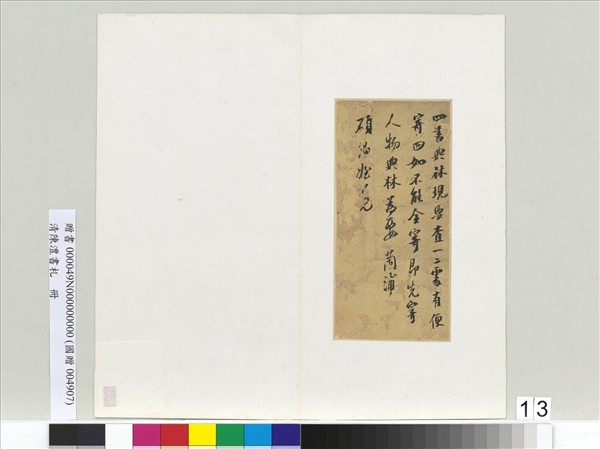 四書典林現要查一二處有便
寄回如不能全寄即先寄
人物典林為要 蘭浦
碩
贈書 000049N000000000 (國贈 004907)
清陳澧書札 冊
13